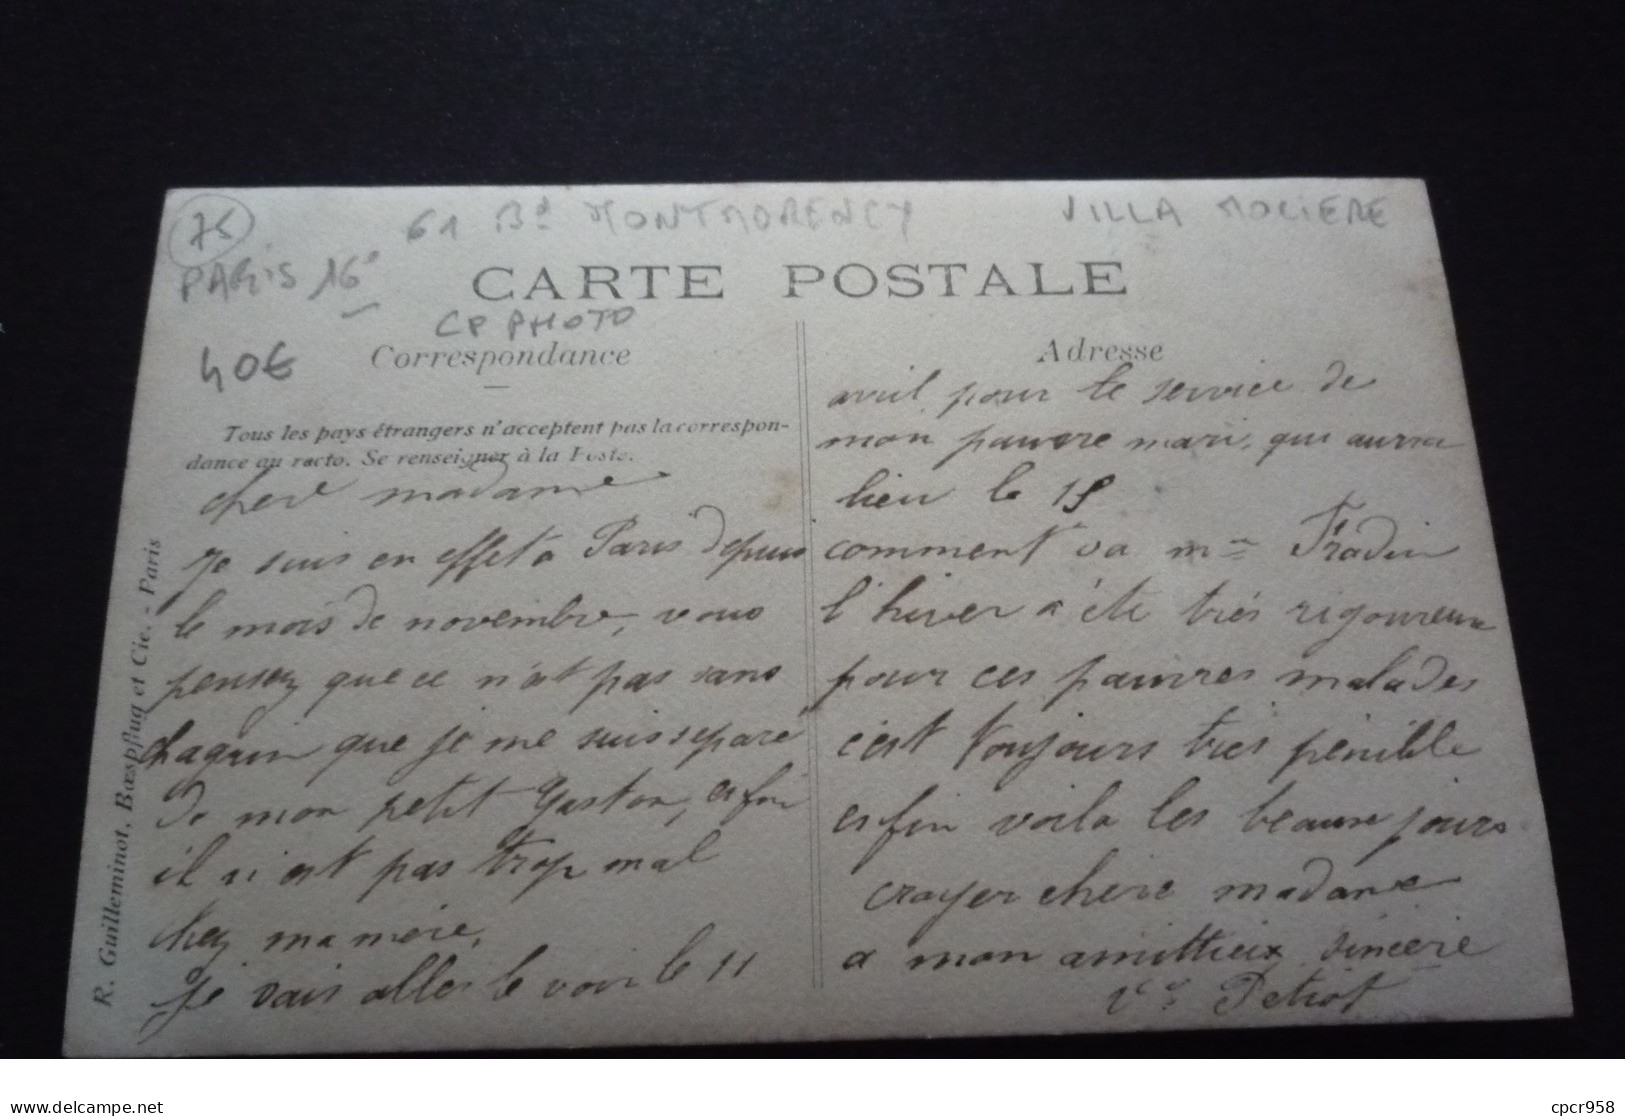 75
61 Bd MONTMORENCY VILLA MOLIERE
PARIS 16e
CARTE POSTALE
CP PHOTO
40€
Correspondance
Tous les pays étrangers n'acceptent pas la correspon-
dance au recto. Se renseigner à la Poste.
chere madame
je suis en effet a Paris depuis
le mois de novembre, vous
pensez que ce n'ait pas sans
chagrin que je me suis separé
de mon petit Gaston, enfin
il n'est pas trop mal
chez ma mère,
je vais aller le voir le 11
Adresse
avril pour le service de
mon pauvre mari, qui aurra
lieu le 15
comment va mme Fradin
l'hiver a été très rigoureux
pour ces pauvres malades
c'est toujours très pénible
enfin voila les beaux jours
crayer chere madame
a mon amittieux sincère
Vve Petiot
R. Guilleminot, Bœspflug et Cie. - Paris
delcampe.net
cpcr958